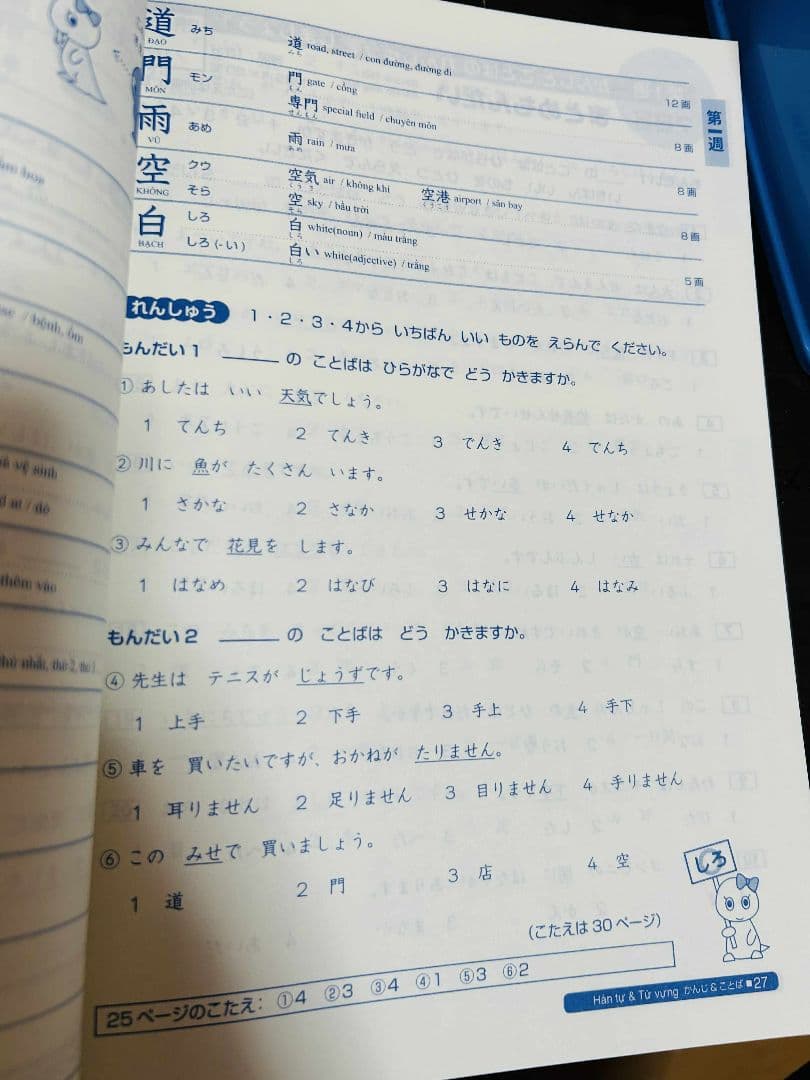 道 ĐẠO みち 道 みち road, street / con đường, đường đi 12画
門 MÔN モン 門 もん gate / cổng
専門 せんもん special field / chuyên môn 8画
雨 VŨ あめ 雨 あめ rain / mưa 8画
空 KHÔNG クウ 空気 くうき air / không khí 空港 くうこう airport / sân bay
そら 空 そら sky / bầu trời 8画
白 BẠCH しろ 白 しろ white(noun) / màu trắng
しろ(-い) 白い しろ white(adjective) / trắng 5画
第一週
れんしゅう 1・2・3・4から いちばん いい ものを えらんで ください。
もんだい1 ______の ことばは ひらがなで どう かきますか。
① あしたは いい 天気でしょう。
1 てんち 2 てんき 3 でんき 4 でんち
② 川に 魚が たくさん います。
1 さかな 2 さなか 3 せかな 4 せなか
③ みんなで 花見を します。
1 はなめ 2 はなび 3 はなに 4 はなみ
もんだい2 ______の ことばは どう かきますか。
④ 先生は テニスが じょうずです。
1 上手 2 下手 3 手上 4 手下
⑤ 車を 買いたいですが、おかねが たりません。
1 耳りません 2 足りません 3 目りません 4 手りません
⑥ この みせで 買いましょう。
1 道 2 門 3 店 4 空
しろ
(こたえは30ページ)
25ページのこたえ: ①4 ②3 ③4 ④1 ⑤3 ⑥2
Hán tự & Từ vựng かんじ&ことば ■27
/ bệnh, ốm
vệ sinh
/ đỏ
thêm vào